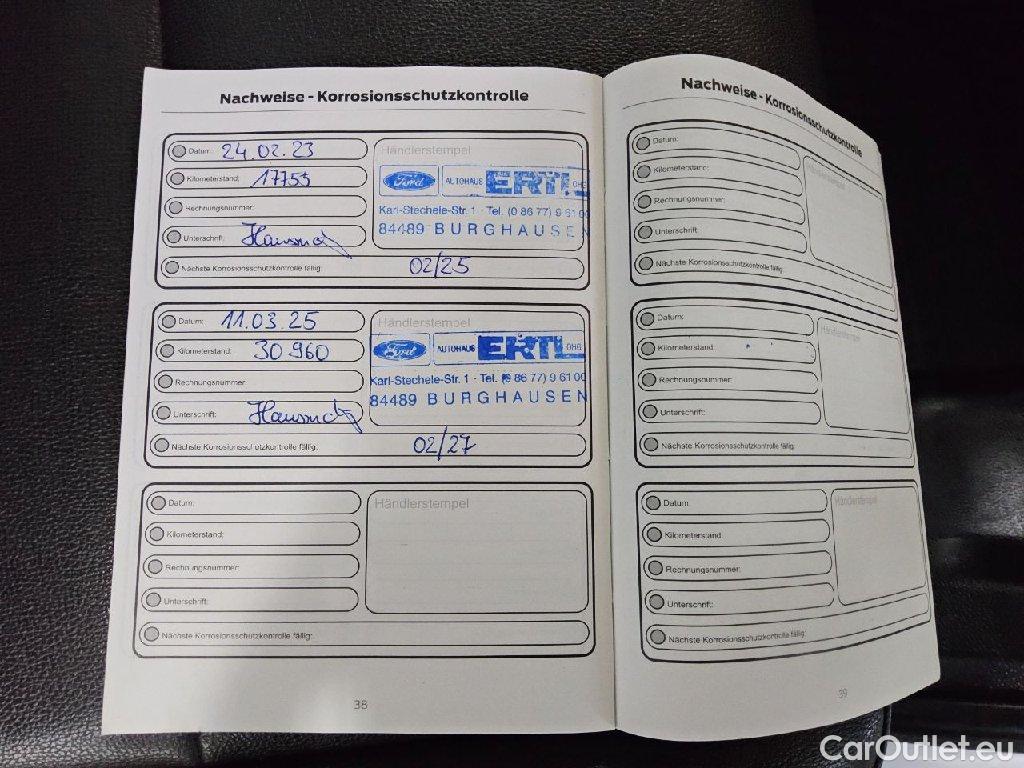 Nachweise - Korrosionsschutzkontrolle
Datum: 24.02.23
Händlerstempel
Kilometerstand: 17755
Ford AUTOHAUS ERTL OHG
Rechnungsnummer:
Karl-Stechele-Str. 1 · Tel. (0 86 77) 9 61 00
84489 BURGHAUSEN
Unterschrift:
Nächste Korrosionsschutzkontrolle fällig: 02/25
Datum: 11.03.25
Händlerstempel
Kilometerstand: 30 960
Ford AUTOHAUS ERTL OHG
Rechnungsnummer:
Karl-Stechele-Str. 1 · Tel. (0 86 77) 9 61 00
84489 BURGHAUSEN
Unterschrift:
Nächste Korrosionsschutzkontrolle fällig: 02/27
Datum:
Händlerstempel
Kilometerstand:
Rechnungsnummer:
Unterschrift:
Nächste Korrosionsschutzkontrolle fällig:
38
Nachweise - Korrosionsschutzkontrolle
Datum:
Händlerstempel
Kilometerstand:
Rechnungsnummer:
Unterschrift:
Nächste Korrosionsschutzkontrolle fällig:
Datum:
Händlerstempel
Kilometerstand:
Rechnungsnummer:
Unterschrift:
Nächste Korrosionsschutzkontrolle fällig:
Datum:
Händlerstempel
Kilometerstand:
Rechnungsnummer:
Unterschrift:
Nächste Korrosionsschutzkontrolle fällig:
39
CarOutlet.eu